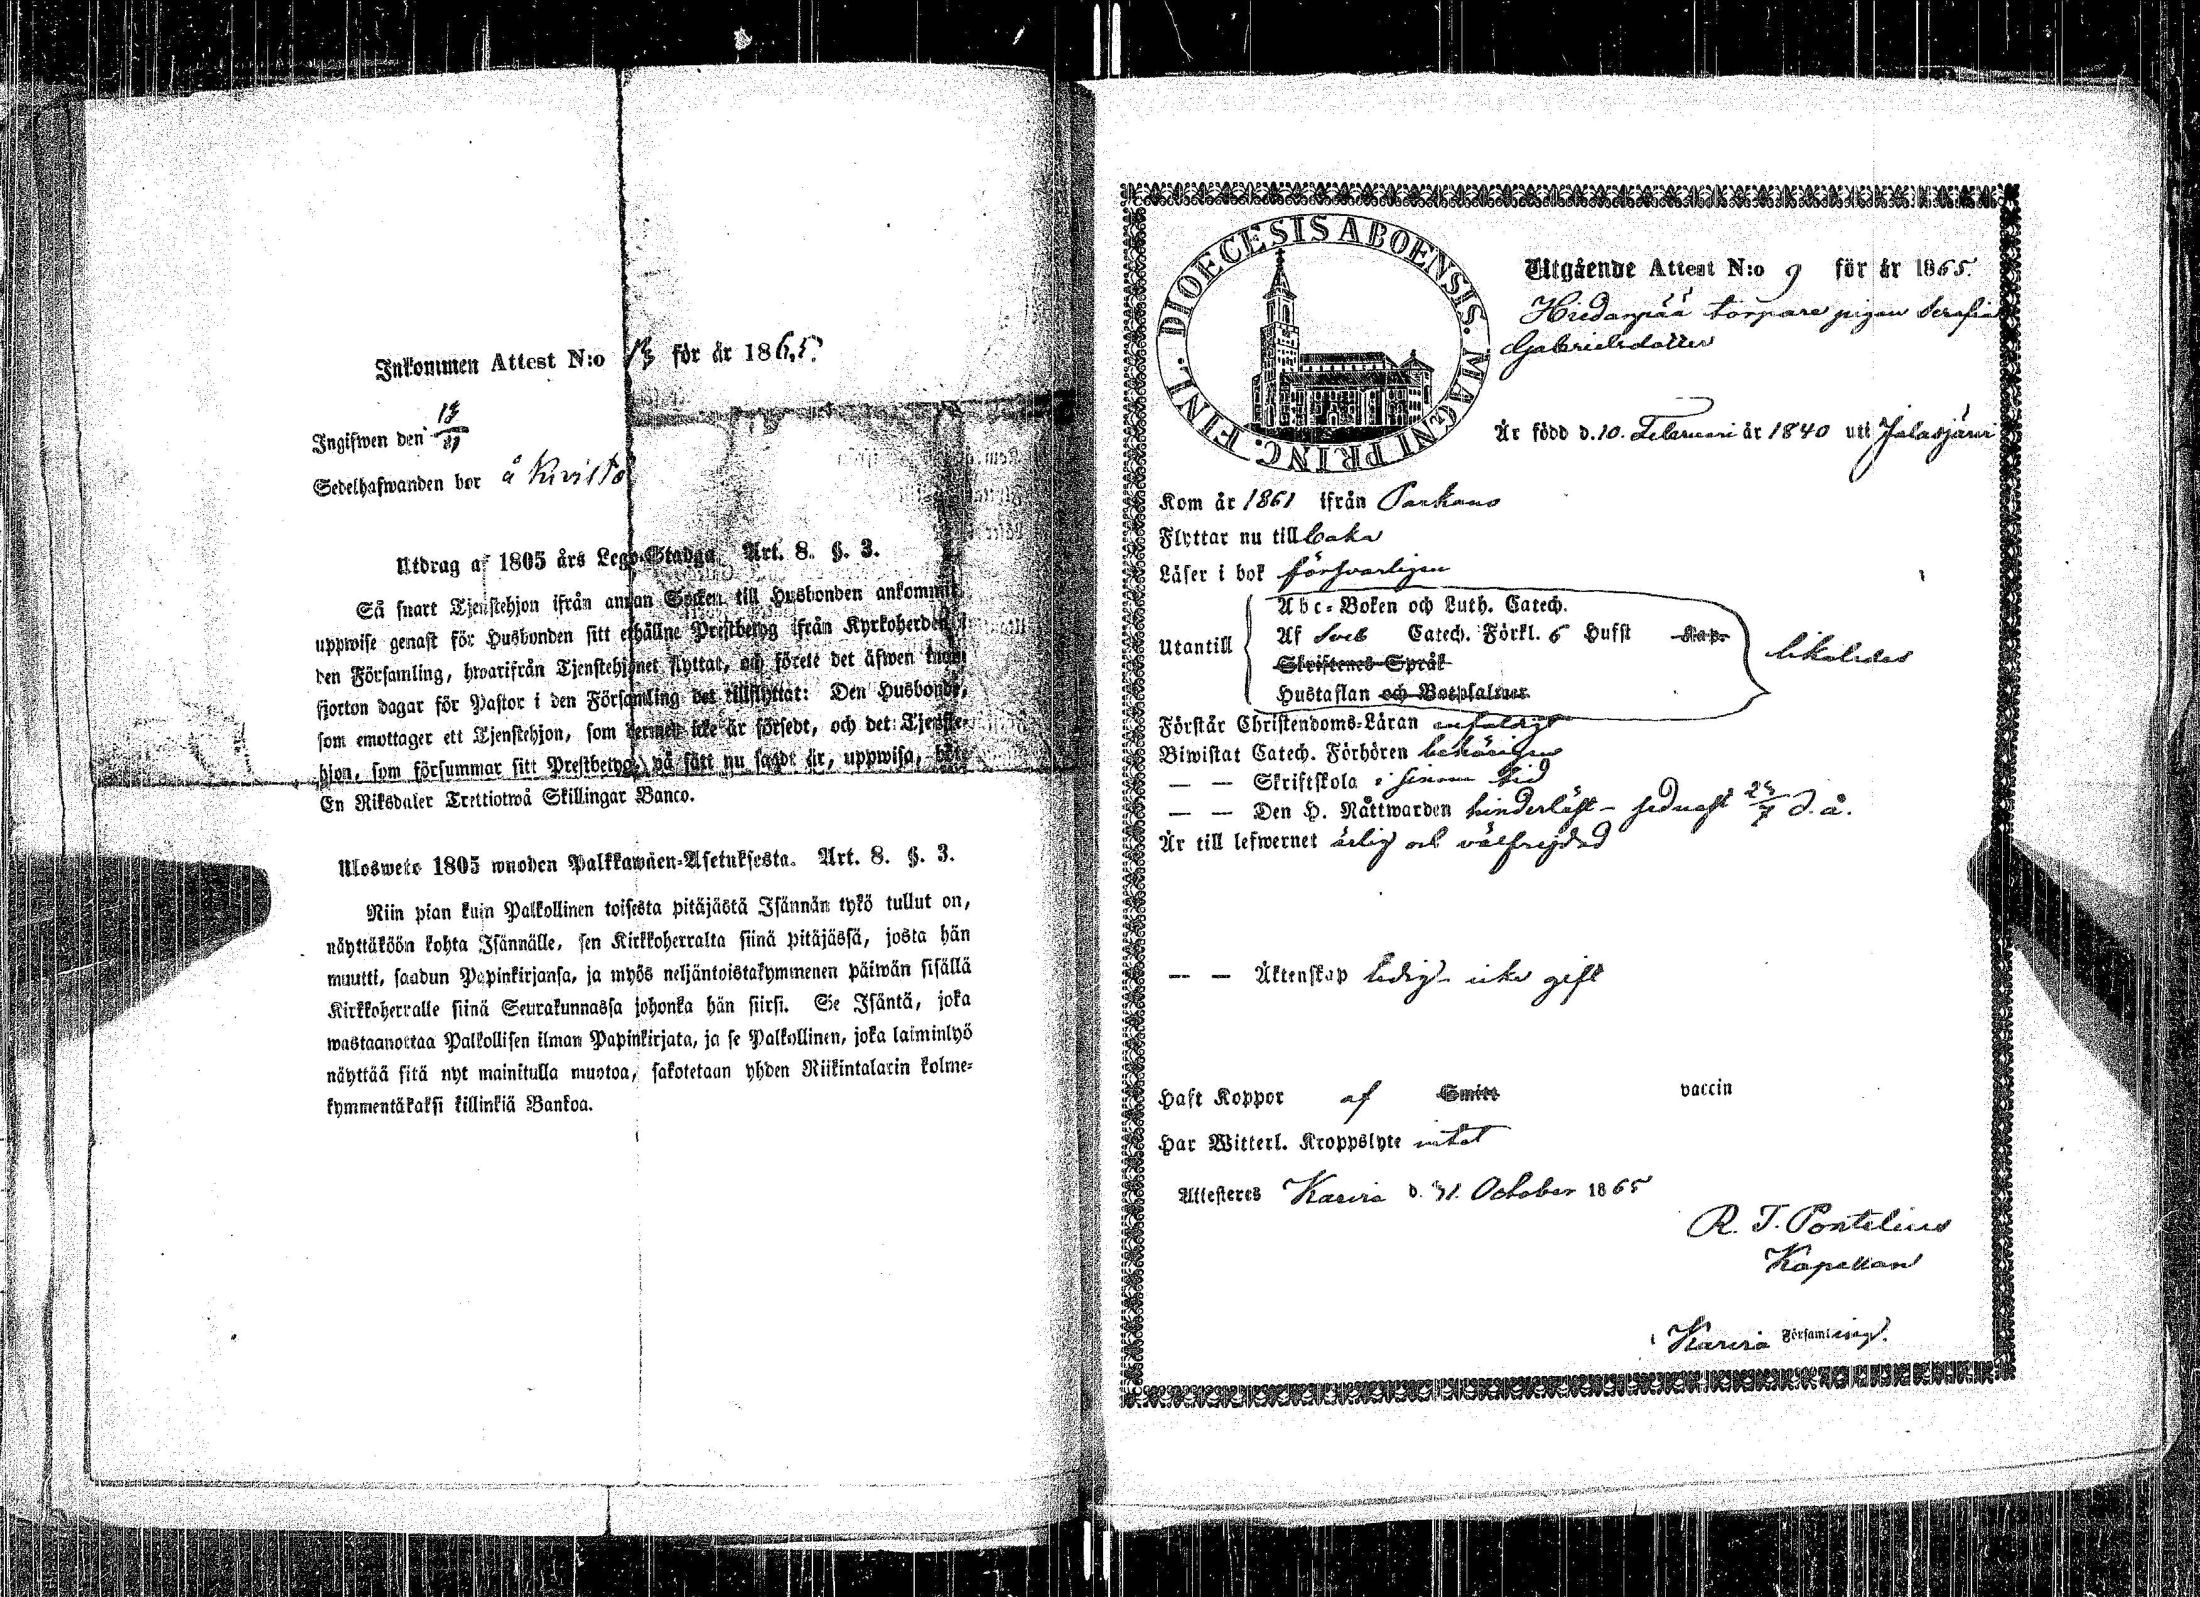 Inkommen Attest N:o 13 för år 1865.
Ingifwen den
Sedelhafwanden bor å Kvisto
Utdrag af 1805 års Lego-Stadga Art. 8. §. 3.
Så snart Tjenstehjon ifrån annan Socken till Husbonden ankommit,
uppwise genast för Husbonden sitt erhållne Prestbetyg ifrån Kyrkoherden i
den Församling, hwarifrån Tjenstehjonet flyttat, och förete det äfwen inom
fjorton dagar för Pastor i den Församling det tillflyttat: Den Husbonde,
som emottager ett Tjenstehjon, som dermed icke är försedt, och det Tjenste-
hjon, som försummar sitt Prestbetyg, på sätt nu sagdt är, uppwisa, böte
En Riksdaler Trettiotwå Skillingar Banco.
Ulosweto 1805 wuoden Palkkawäen-Asetuksesta. Art. 8. §. 3.
Niin pian kuin Palkollinen toisesta pitäjästä Isännän tykö tullut on,
näyttäköön kohta Isännälle, sen Kirkkoherralta siinä pitäjässä, josta hän
muutti, saadun Papinkirjansa, ja myös neljäntoistakymmenen päiwän sisällä
Kirkkoherralle siinä Seurakunnassa johonka hän siirsi. Se Isäntä, joka
wastaanottaa Palkollisen ilman Papinkirjata, ja se Palkollinen, joka laiminlyö
näyttää sitä nyt mainitulla muotoa, sakotetaan yhden Riikintalarin kolme-
kymmentäkaksi killinkiä Bankoa.
DIOECESIS ABOENSIS. MAGNI PRINC. FINL.
Utgående Attest N:o 9 för år 1865.
torpare pigan Serafia
Gabrielsdotter
Är född d. 10. Februari år 1840 uti Jalasjärvi
Kom år 1861 ifrån Parkano
Flyttar nu till
Läser i bok försvarligen
Abc-Boken och Luth. Catech.
Utantill Af Sveb Catech. Förkl. 5 Hufst Kap. likaledes
Skriftenes Språk
Hustaflan och Botpsalmer
Förstår Christendoms-Läran enfaldigt
Biwistat Catech. Förhören behörigen
— — Skriftskola i sinom tid
— — Den H. Nattwarden hinderlöst - sednast 23/7 d. å.
Är till lefwernet ärlig och välfrejdad
— — Äktenskap ledig - icke gift
Haft Koppor af Smitt vaccin
Har Witterl. Kroppslyte intet
Attesteres Karvia d. 31. October 1865
R. T. Pontelius
Kapellan
i Karvia Församling.